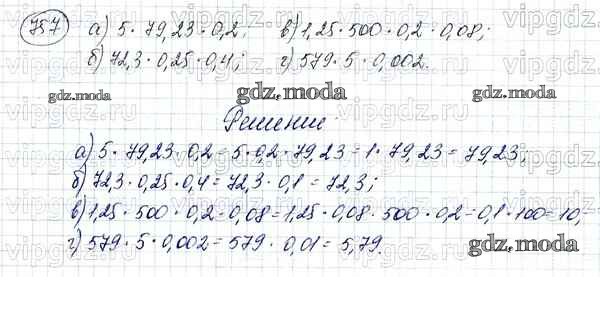 757 а) 5 · 79,23 · 0,2; в) 1,25 · 500 · 0,2 · 0,08;
б) 72,3 · 0,25 · 0,4; г) 579 · 5 · 0,002.
gdz.moda gdz.moda gdz.moda
Решение
а) 5 · 79,23 · 0,2 = 5 · 0,2 · 79,23 = 1 · 79,23 = 79,23;
б) 72,3 · 0,25 · 0,4 = 72,3 · 0,1 = 72,3;
в) 1,25 · 500 · 0,2 · 0,08 = 1,25 · 0,08 · 500 · 0,2 = 0,1 · 100 = 10;
г) 579 · 5 · 0,002 = 579 · 0,01 = 5,79.
gdz.moda
vipgdz.ru